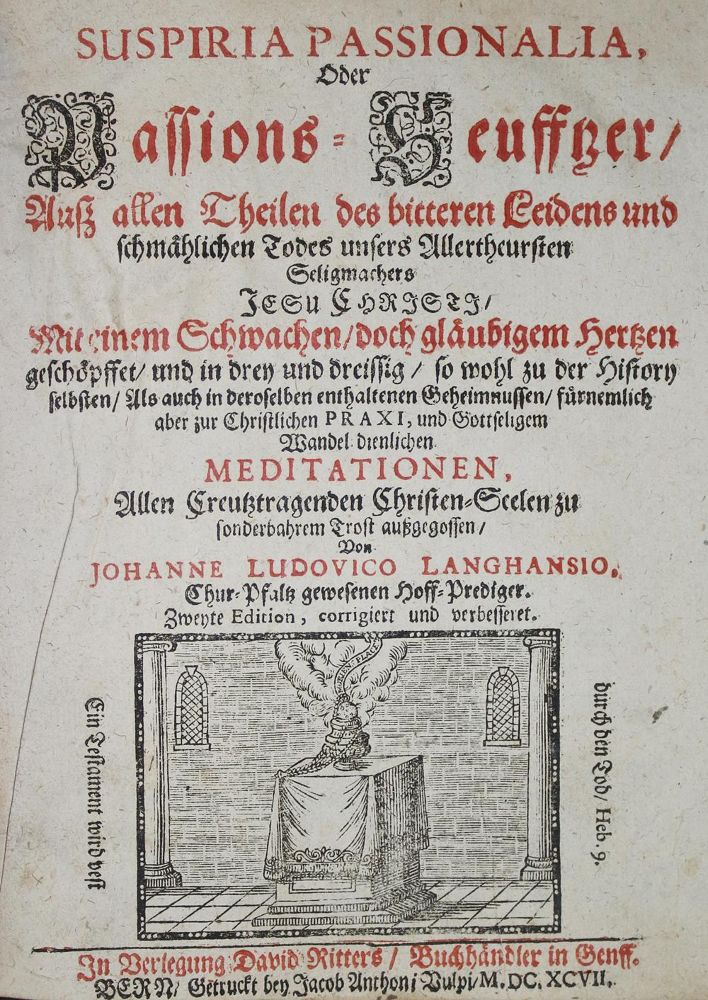 SUSPIRIA PASSIONALIA,
Oder
Passions-Seufftzer/
Auß allen Theilen des bitteren Leidens und
schmählichen Todes unsers Allertheursten
Seligmachers
JESU CHRISTI/
Mit einem Schwachen/doch gläubigem Hertzen
geschöpffet/ und in drey und dreissig / so wohl zu der History
selbsten/ Als auch in deroselben enthaltenen Geheimnussen/ fürnemlich
aber zur Christlichen PRAXI, und Gottseligem
Wandel dienlichen
MEDITATIONEN,
Allen Creutztragenden Christen-Seelen zu
sonderbahrem Trost außgegossen/
Von
JOHANNE LUDOVICO LANGHANSIO,
Chur-Pfaltz gewesenen Hoff-Prediger.
Zweyte Edition, corrigiert und verbesseret.
Ein Testament wird vest
durch den Tod/ Heb. 9.
In Verlegung David Ritters/ Buchhändler in Genff.
BERN/ Getruckt bey Jacob Anthoni Vulpi/ M. DC. XCVII.